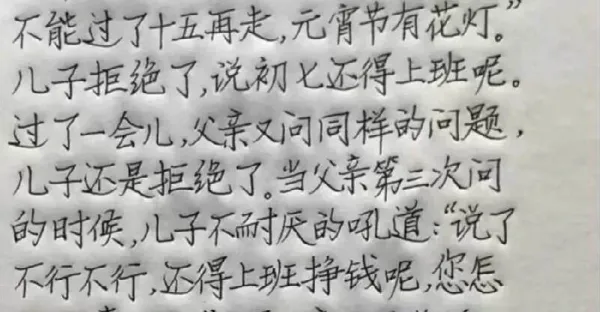 不能过了十五再走,元宵节有花灯。”
儿子拒绝了,说初七还得上班呢。
过了一会儿,父亲又问同样的问题,
儿子还是拒绝了。当父亲第三次问
的时候,儿子不耐厌的吼道:“说了
不行不行,还得上班挣钱呢,您怎